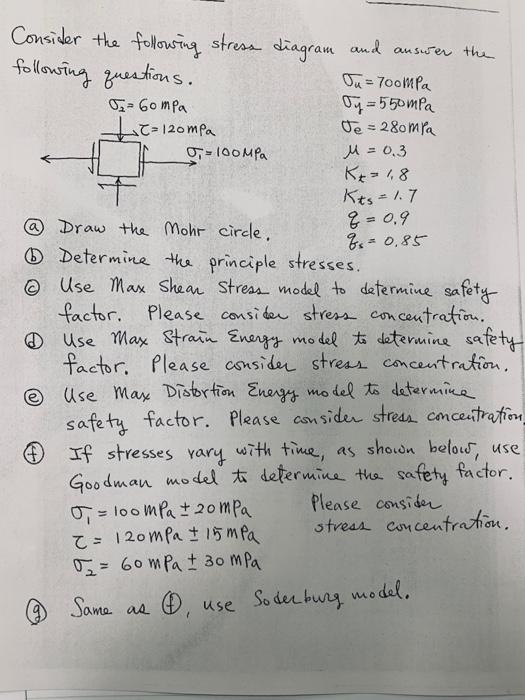 Consider the following stress diagram and answer the
following questions.
σ₂ = 60 mPa
τ = 120 mPa
σ₁ = 100 MPa
σu = 700 MPa
σy = 550 mPa
σe = 280 mPa
μ = 0.3
Kt = 1.8
Kts = 1.7
q = 0.9
qs = 0.85
ⓐ Draw the Mohr circle.
ⓑ Determine the principle stresses.
ⓒ Use Max Shear Stress model to determine safety
factor. Please consider stress concentration.
ⓓ Use Max Strain Energy model to determine safety
factor. Please consider stress concentration.
ⓔ Use Max Distortion Energy model to determine
safety factor. Please consider stress concentration.
ⓕ If stresses vary with time, as shown below, use
Goodman model to determine the safety factor.
σ₁ = 100 mPa ± 20 mPa
τ = 120 mPa ± 15 mPa
σ₂ = 60 mPa ± 30 mPa
Please consider
stress concentration.
ⓖ Same as ⓕ, use Soderburg model.